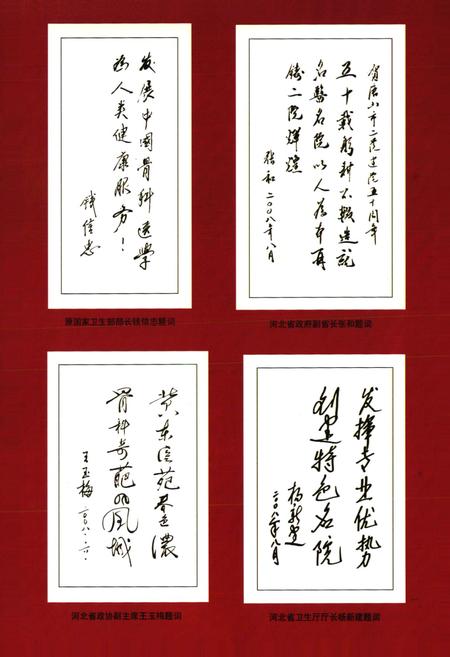 发展中国骨科医学
为人类健康服务！
钱信忠
原国家卫生部部长钱信忠题词
贺唐山市二院建院五十周年
五十载躬耕不辍造就
名醫名院以人为本再
铸二院辉煌
张和 二〇〇八年八月
河北省政府副省长张和题词
冀东医苑春色浓
骨科奇葩 凤城
王玉梅 二〇〇八·六·
河北省政协副主席王玉梅题词
发挥专业优势
创建特色名院
杨新建
二〇〇八年八月
河北省卫生厅厅长杨新建题词